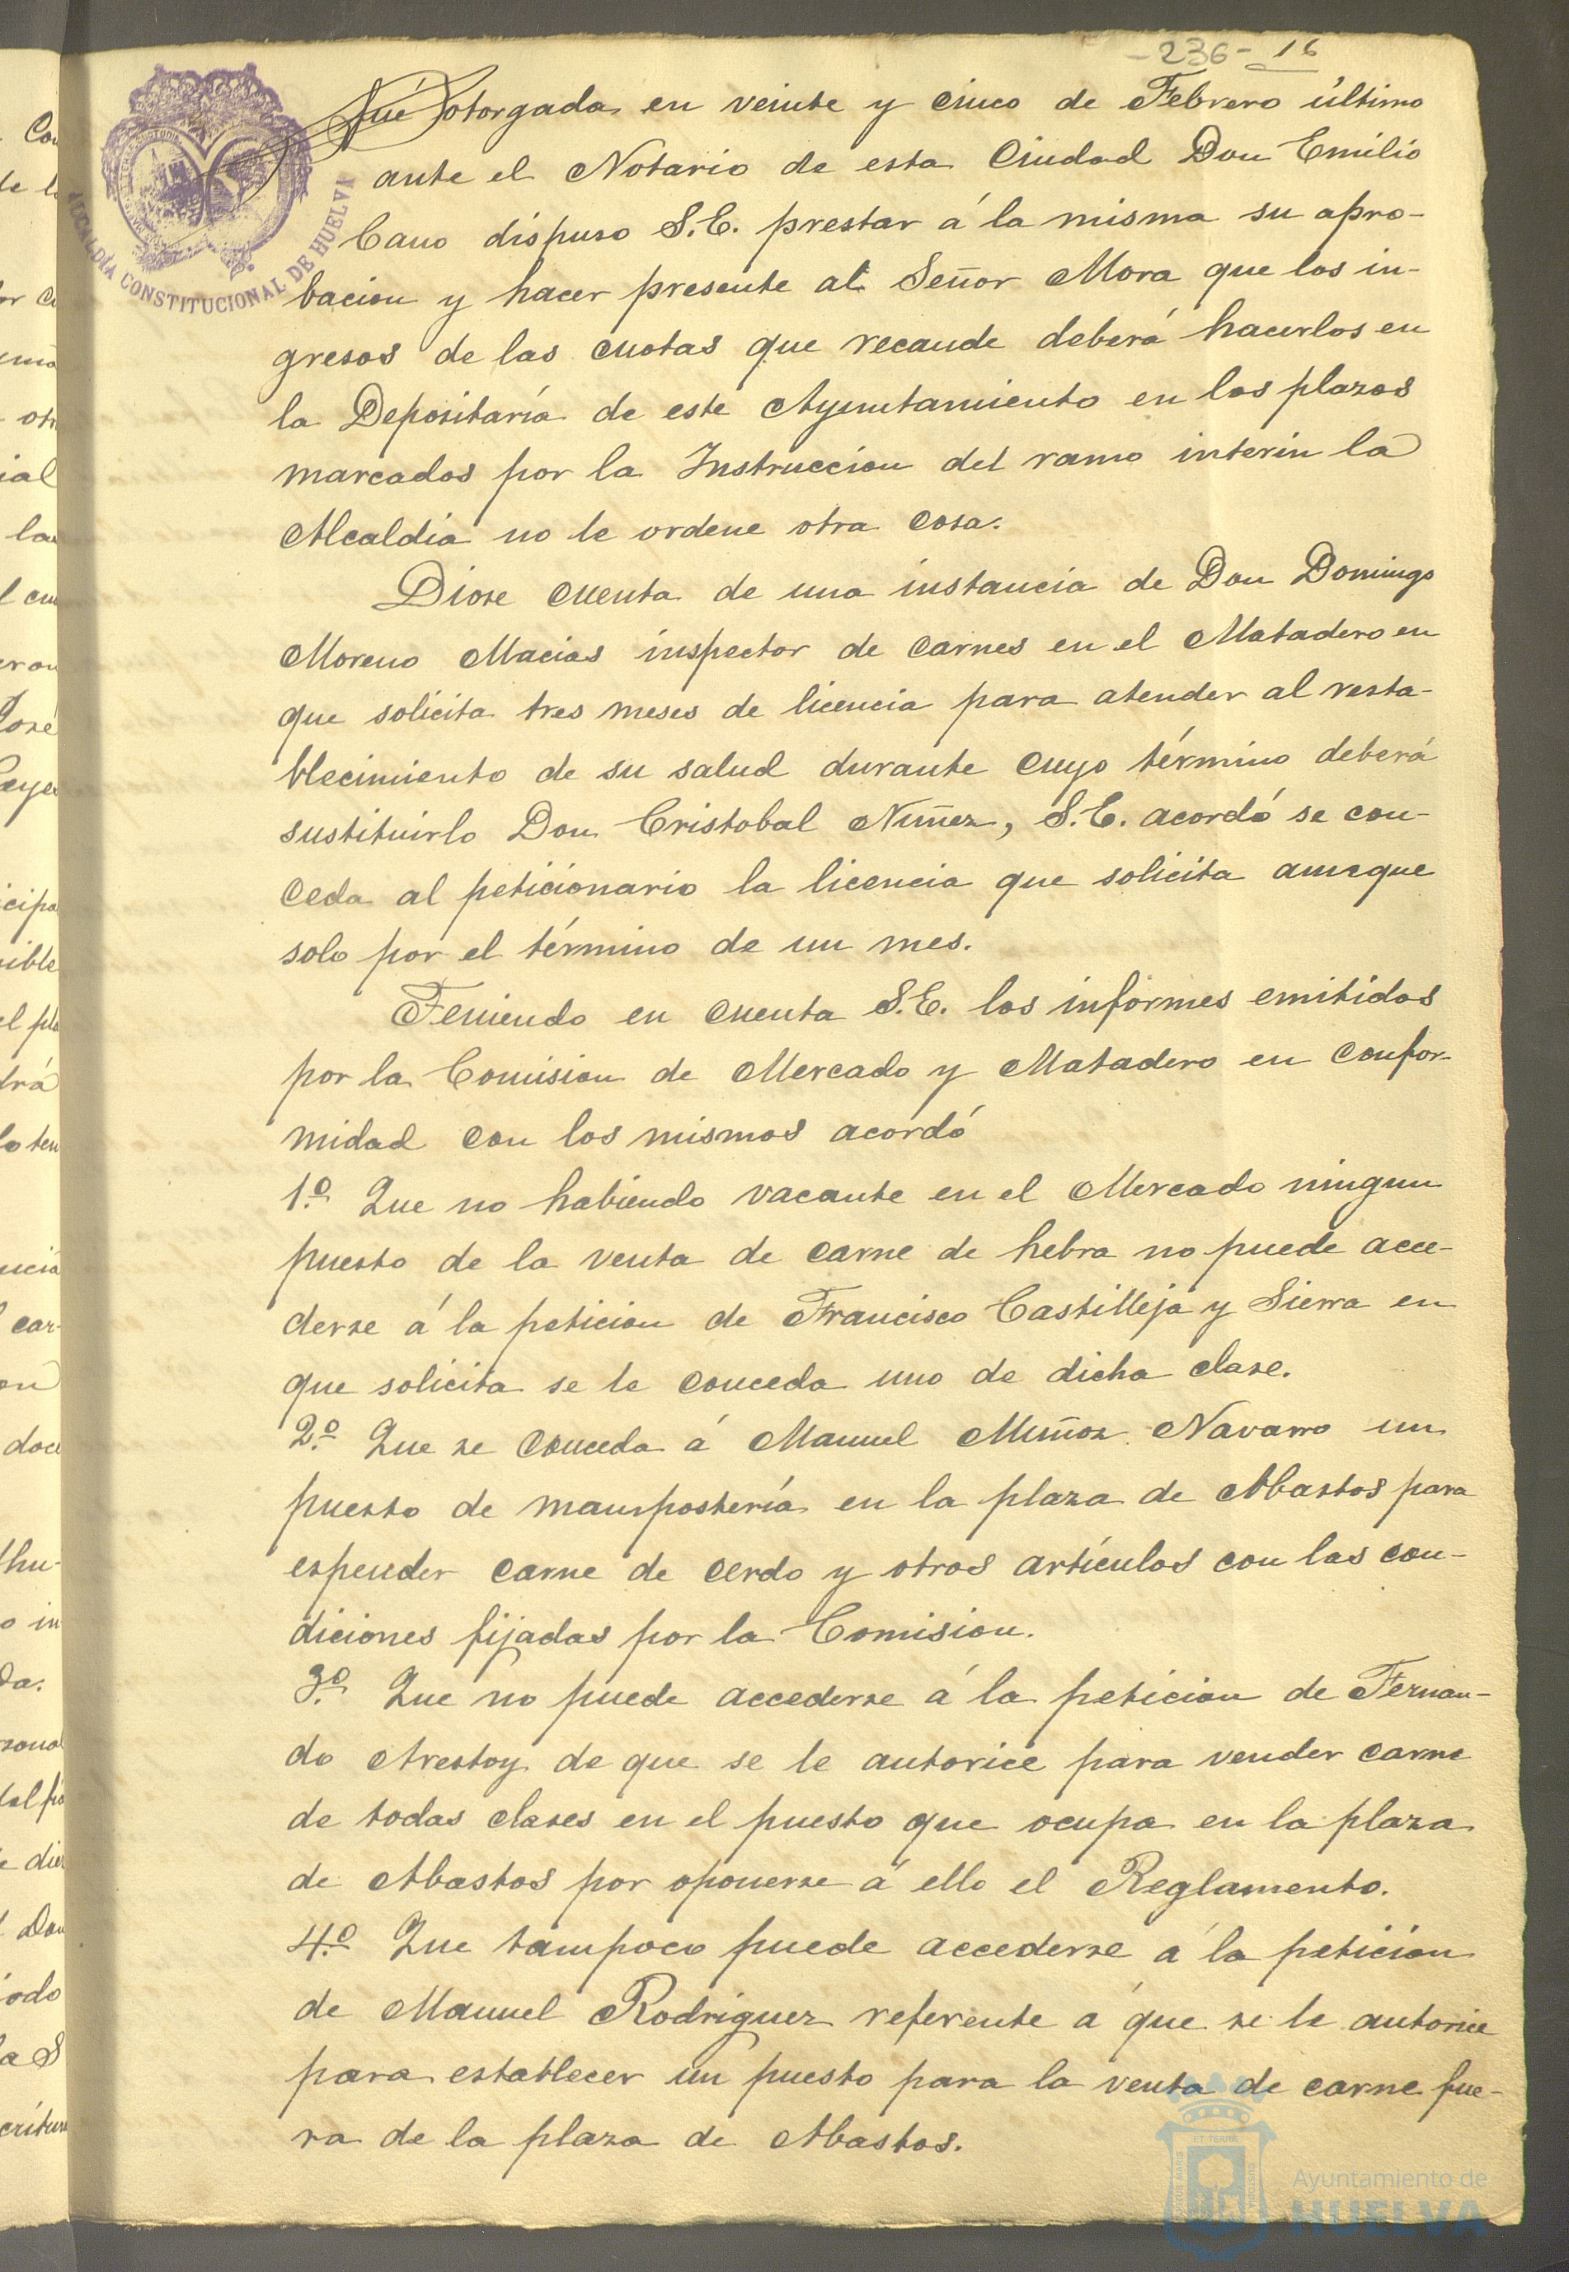 -236- 16
fué otorgada en veinte y cinco de Febrero último
ante el Notario de esta Ciudad Don Emilio
Cano dispuso S.E. prestar á la misma su apro-
bacion y hacer presente al Señor Mora que los in-
gresos de las cuotas que recaude deberá hacerlos en
la Depositaría de este Ayuntamiento en los plazos
marcados por la Instruccion del ramo interin la
Alcaldia no le ordene otra cosa.
Diose cuenta de una instancia de Don Domingo
Moreno Macias inspector de carnes en el Matadero en
que solicita tres meses de licencia para atender al resta-
blecimiento de su salud durante cuyo término deberá
sustituirlo Don Cristobal Nuñez, S.E. acordó se con-
ceda al peticionario la licencia que solicita aunque
solo por el término de un mes.
Teniendo en cuenta S.E. los informes emitidos
por la Comision de Mercado y Matadero en confor-
midad con los mismos acordó
1.º Que no habiendo vacante en el Mercado ningun
puesto de la venta de carne de hebra no puede acce-
derse á la peticion de Francisco Castilleja y Sierra en
que solicita se le conceda uno de dicha clase.
2.º Que se conceda á Manuel Muñoz Navarro un
puesto de mampostería en la plaza de Abastos para
espender carne de cerdo y otros artículos con las con-
diciones fijadas por la Comision.
3.º Que no puede accederse á la peticion de Fernan-
do Arestoy de que se le autorice para vender carne
de todas clases en el puesto que ocupa en la plaza
de Abastos por oponerse á ello el Reglamento.
4.º Que tampoco puede accederse á la peticion
de Manuel Rodriguez referente á que se le autorice
para establecer un puesto para la venta de carne fue-
ra de la plaza de Abastos.
ALCALDÍA CONSTITUCIONAL DE HUELVA
Ayuntamiento de
HUELVA